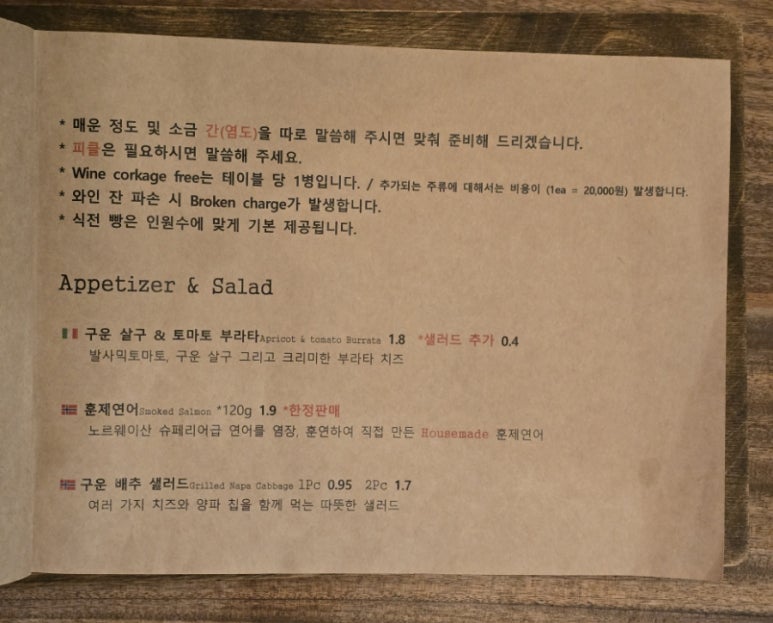 * 매운 정도 및 소금 간(염도)을 따로 말씀해 주시면 맞춰 준비해 드리겠습니다.
* 피클은 필요하시면 말씀해 주세요.
* Wine corkage free는 테이블 당 1병입니다. / 추가되는 주류에 대해서는 비용이 (1ea = 20,000원) 발생합니다.
* 와인 잔 파손 시 Broken charge가 발생합니다.
* 식전 빵은 인원수에 맞게 기본 제공됩니다.
Appetizer & Salad
구운 살구 & 토마토 부라타Apricot & tomato Burrata 1.8 *샐러드 추가 0.4
발사믹토마토, 구운 살구 그리고 크리미한 부라타 치즈
훈제연어Smoked Salmon *120g 1.9 *한정판매
노르웨이산 슈페리어급 연어를 염장, 훈연하여 직접 만든 Housemade 훈제연어
구운 배추 샐러드Grilled Napa Cabbage 1Pc 0.95 2Pc 1.7
여러 가지 치즈와 양파 칩을 함께 먹는 따뜻한 샐러드